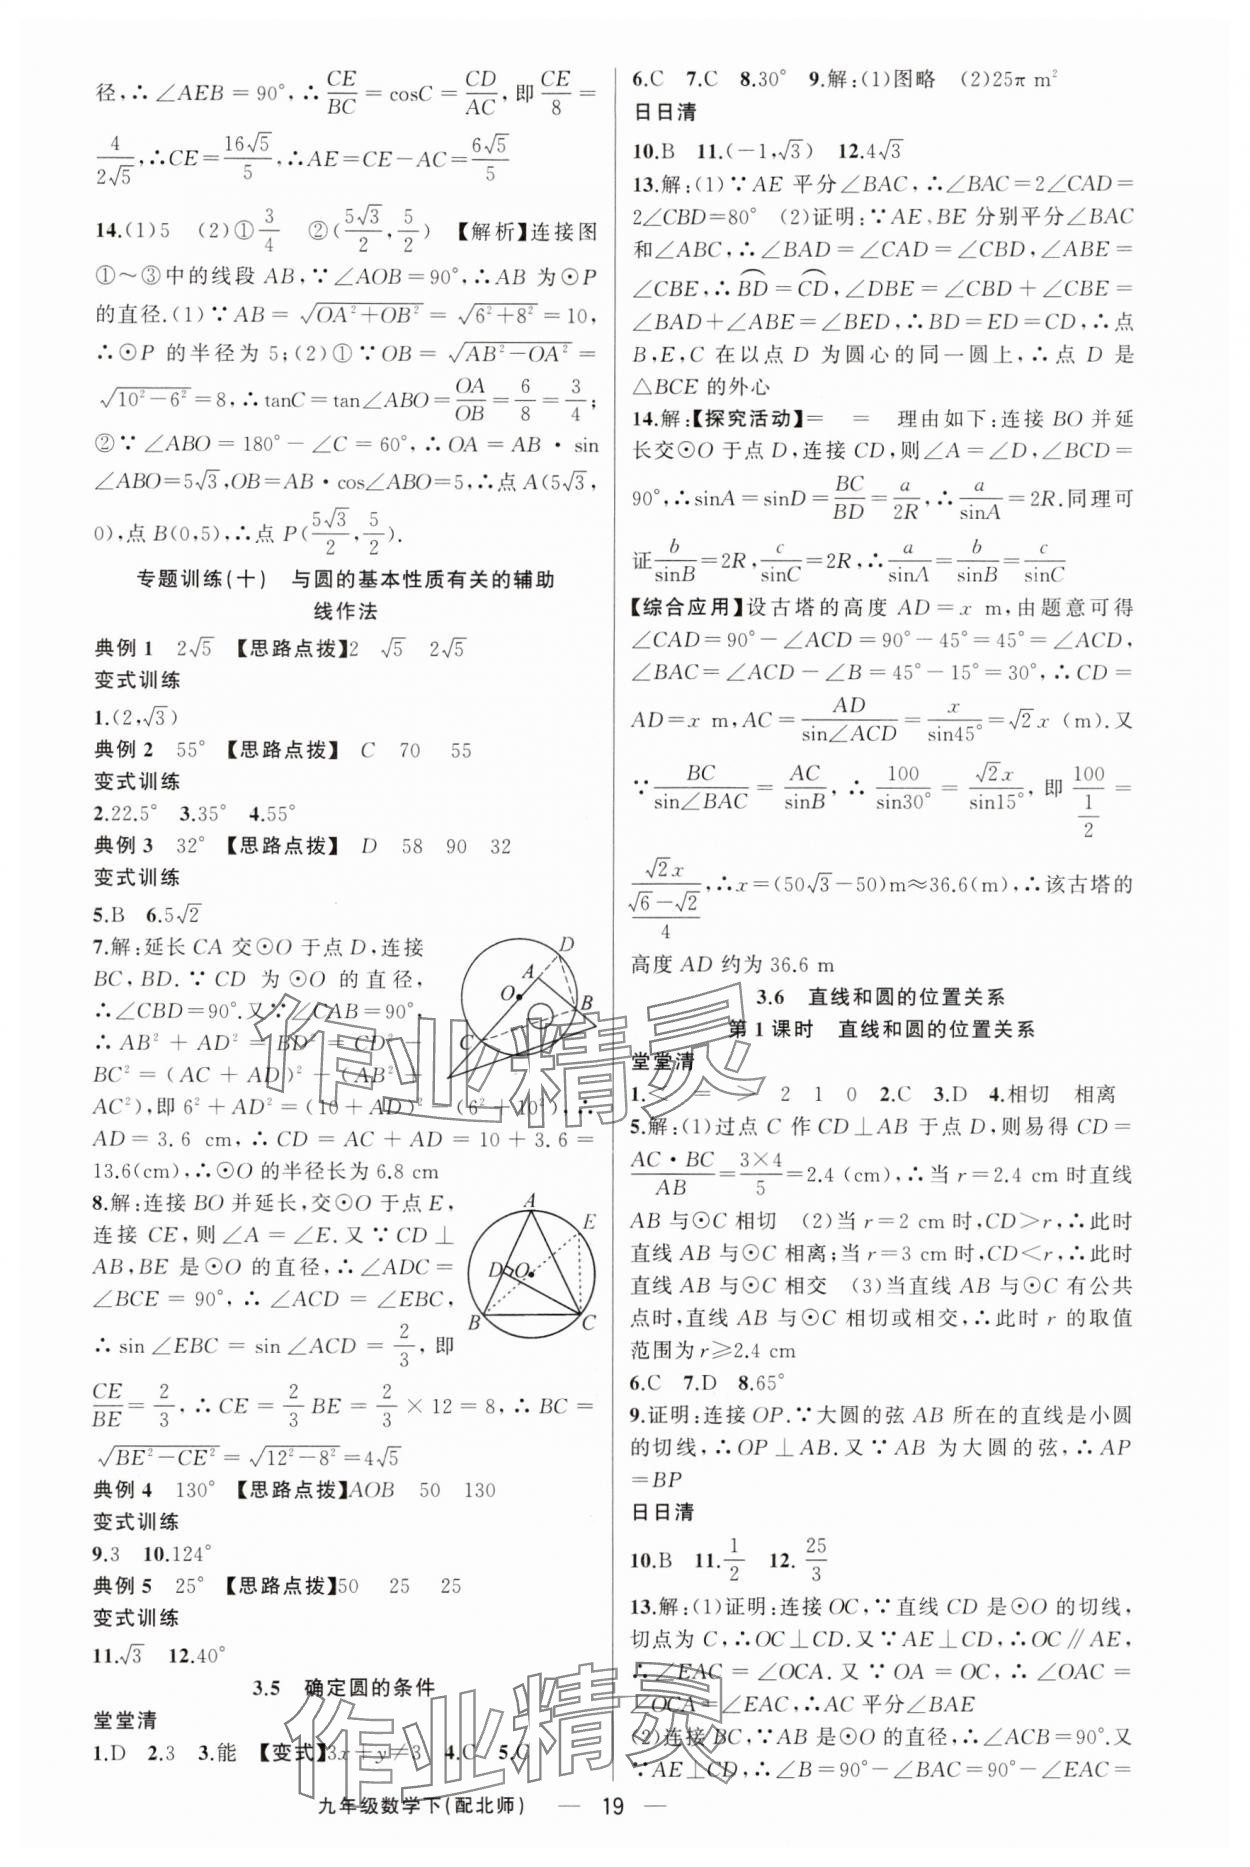 径,∴∠AEB=90°,∴CE/BC=cosC=CD/AC,即CE/8=
4/(2√5),∴CE=16√5/5,∴AE=CE-AC=6√5/5
14.(1)5 (2)①3/4 ②(5√3/2,5/2) 【解析】连接图
①~③中的线段 AB,∵∠AOB=90°,∴AB 为⊙P
的直径.(1)∵AB=√(OA²+OB²)=√(6²+8²)=10,
∴⊙P 的半径为 5;(2)①∵OB=√(AB²-OA²)=
√(10²-6²)=8,∴tanC=tan∠ABO=OA/OB=6/8=3/4;
②∵∠ABO=180°-∠C=60°,∴OA=AB·sin
∠ABO=5√3,OB=AB·cos∠ABO=5,∴点 A(5√3,
0),点 B(0,5),∴点 P(5√3/2,5/2).
专题训练(十) 与圆的基本性质有关的辅助
线作法
典例 1 2√5 【思路点拨】2 √5 2√5
变式训练
1.(2,√3)
典例 2 55° 【思路点拨】 C 70 55
变式训练
2.22.5° 3.35° 4.55°
典例 3 32° 【思路点拨】 D 58 90 32
变式训练
5.B 6.5√2
7.解:延长 CA 交⊙O 于点 D,连接
BC,BD.∵CD 为⊙O 的直径,
∴∠CBD=90°.又∵∠CAB=90°,
∴AB²+AD²=BD²=CD²-
BC²=(AC+AD)²-(AB²+
AC²),即 6²+AD²=(10+AD)²-(6²+10²),∴
AD=3.6 cm,∴CD=AC+AD=10+3.6=
13.6(cm),∴⊙O 的半径长为 6.8 cm
D
A
O
B
C
8.解:连接 BO 并延长,交⊙O 于点 E,
连接 CE,则∠A=∠E.又∵CD⊥
AB,BE 是⊙O 的直径,∴∠ADC=
∠BCE=90°,∴∠ACD=∠EBC,
∴sin∠EBC=sin∠ACD=2/3,即
CE/BE=2/3,∴CE=2/3BE=2/3×12=8,∴BC=
√(BE²-CE²)=√(12²-8²)=4√5
A
E
D O
B C
典例 4 130° 【思路点拨】AOB 50 130
变式训练
9.3 10.124°
典例 5 25° 【思路点拨】50 25 25
变式训练
11.√3 12.40°
3.5 确定圆的条件
堂堂清
1.D 2.3 3.能 【变式】3x+y≠3 4.C 5.C
6.C 7.C 8.30° 9.解:(1)图略 (2)25π m²
日日清
10.B 11.(-1,√3) 12.4√3
13.解:(1)∵AE 平分∠BAC,∴∠BAC=2∠CAD=
2∠CBD=80° (2)证明:∵AE,BE 分别平分∠BAC
和∠ABC,∴∠BAD=∠CAD=∠CBD,∠ABE=
∠CBE,∴BD⌒=CD⌒,∠DBE=∠CBD+∠CBE=
∠BAD+∠ABE=∠BED,∴BD=ED=CD,∴点
B,E,C 在以点 D 为圆心的同一圆上,∴点 D 是
△BCE 的外心
14.解:【探究活动】= = 理由如下:连接 BO 并延
长交⊙O 于点 D,连接 CD,则∠A=∠D,∠BCD=
90°,∴sinA=sinD=BC/BD=a/2R,∴a/sinA=2R.同理可
证b/sinB=2R,c/sinC=2R,∴a/sinA=b/sinB=c/sinC
【综合应用】设古塔的高度 AD=x m,由题意可得
∠CAD=90°-∠ACD=90°-45°=45°=∠ACD,
∠BAC=∠ACD-∠B=45°-15°=30°,∴CD=
AD=x m,AC=AD/sin∠ACD=x/sin45°=√2x (m).又
∵BC/sin∠BAC=AC/sinB,∴100/sin30°=√2x/sin15°,即100/(1/2)=
√2x/((√6-√2)/4),∴x=(50√3-50)m≈36.6(m),∴该古塔的
高度 AD 约为 36.6 m
3.6 直线和圆的位置关系
第 1 课时 直线和圆的位置关系
堂堂清
1.< = > 2 1 0 2.C 3.D 4.相切 相离
5.解:(1)过点 C 作 CD⊥AB 于点 D,则易得 CD=
AC·BC/AB=3×4/5=2.4 (cm),∴当 r=2.4 cm 时直线
AB 与⊙C 相切 (2)当 r=2 cm 时,CD>r,∴此时
直线 AB 与⊙C 相离;当 r=3 cm 时,CD<r,∴此时
直线 AB 与⊙C 相交 (3)当直线 AB 与⊙C 有公共
点时,直线 AB 与⊙C 相切或相交,∴此时 r 的取值
范围为 r≥2.4 cm
6.C 7.D 8.65°
9.证明:连接 OP.∵大圆的弦 AB 所在的直线是小圆
的切线,∴OP⊥AB.又∵AB 为大圆的弦,∴AP
=BP
日日清
10.B 11.1/2 12.25/3
13.解:(1)证明:连接 OC,∵直线 CD 是⊙O 的切线,
切点为 C,∴OC⊥CD.又∵AE⊥CD,∴OC∥AE,
∴∠EAC=∠OCA.又∵OA=OC,∴∠OAC=
∠OCA=∠EAC,∴AC 平分∠BAE
(2)连接 BC,∵AB 是⊙O 的直径,∴∠ACB=90°.又
∵AE⊥CD,∴∠B=90°-∠BAC=90°-∠EAC=
九年级数学下(配北师) — 19 —
作业精灵
作业精灵